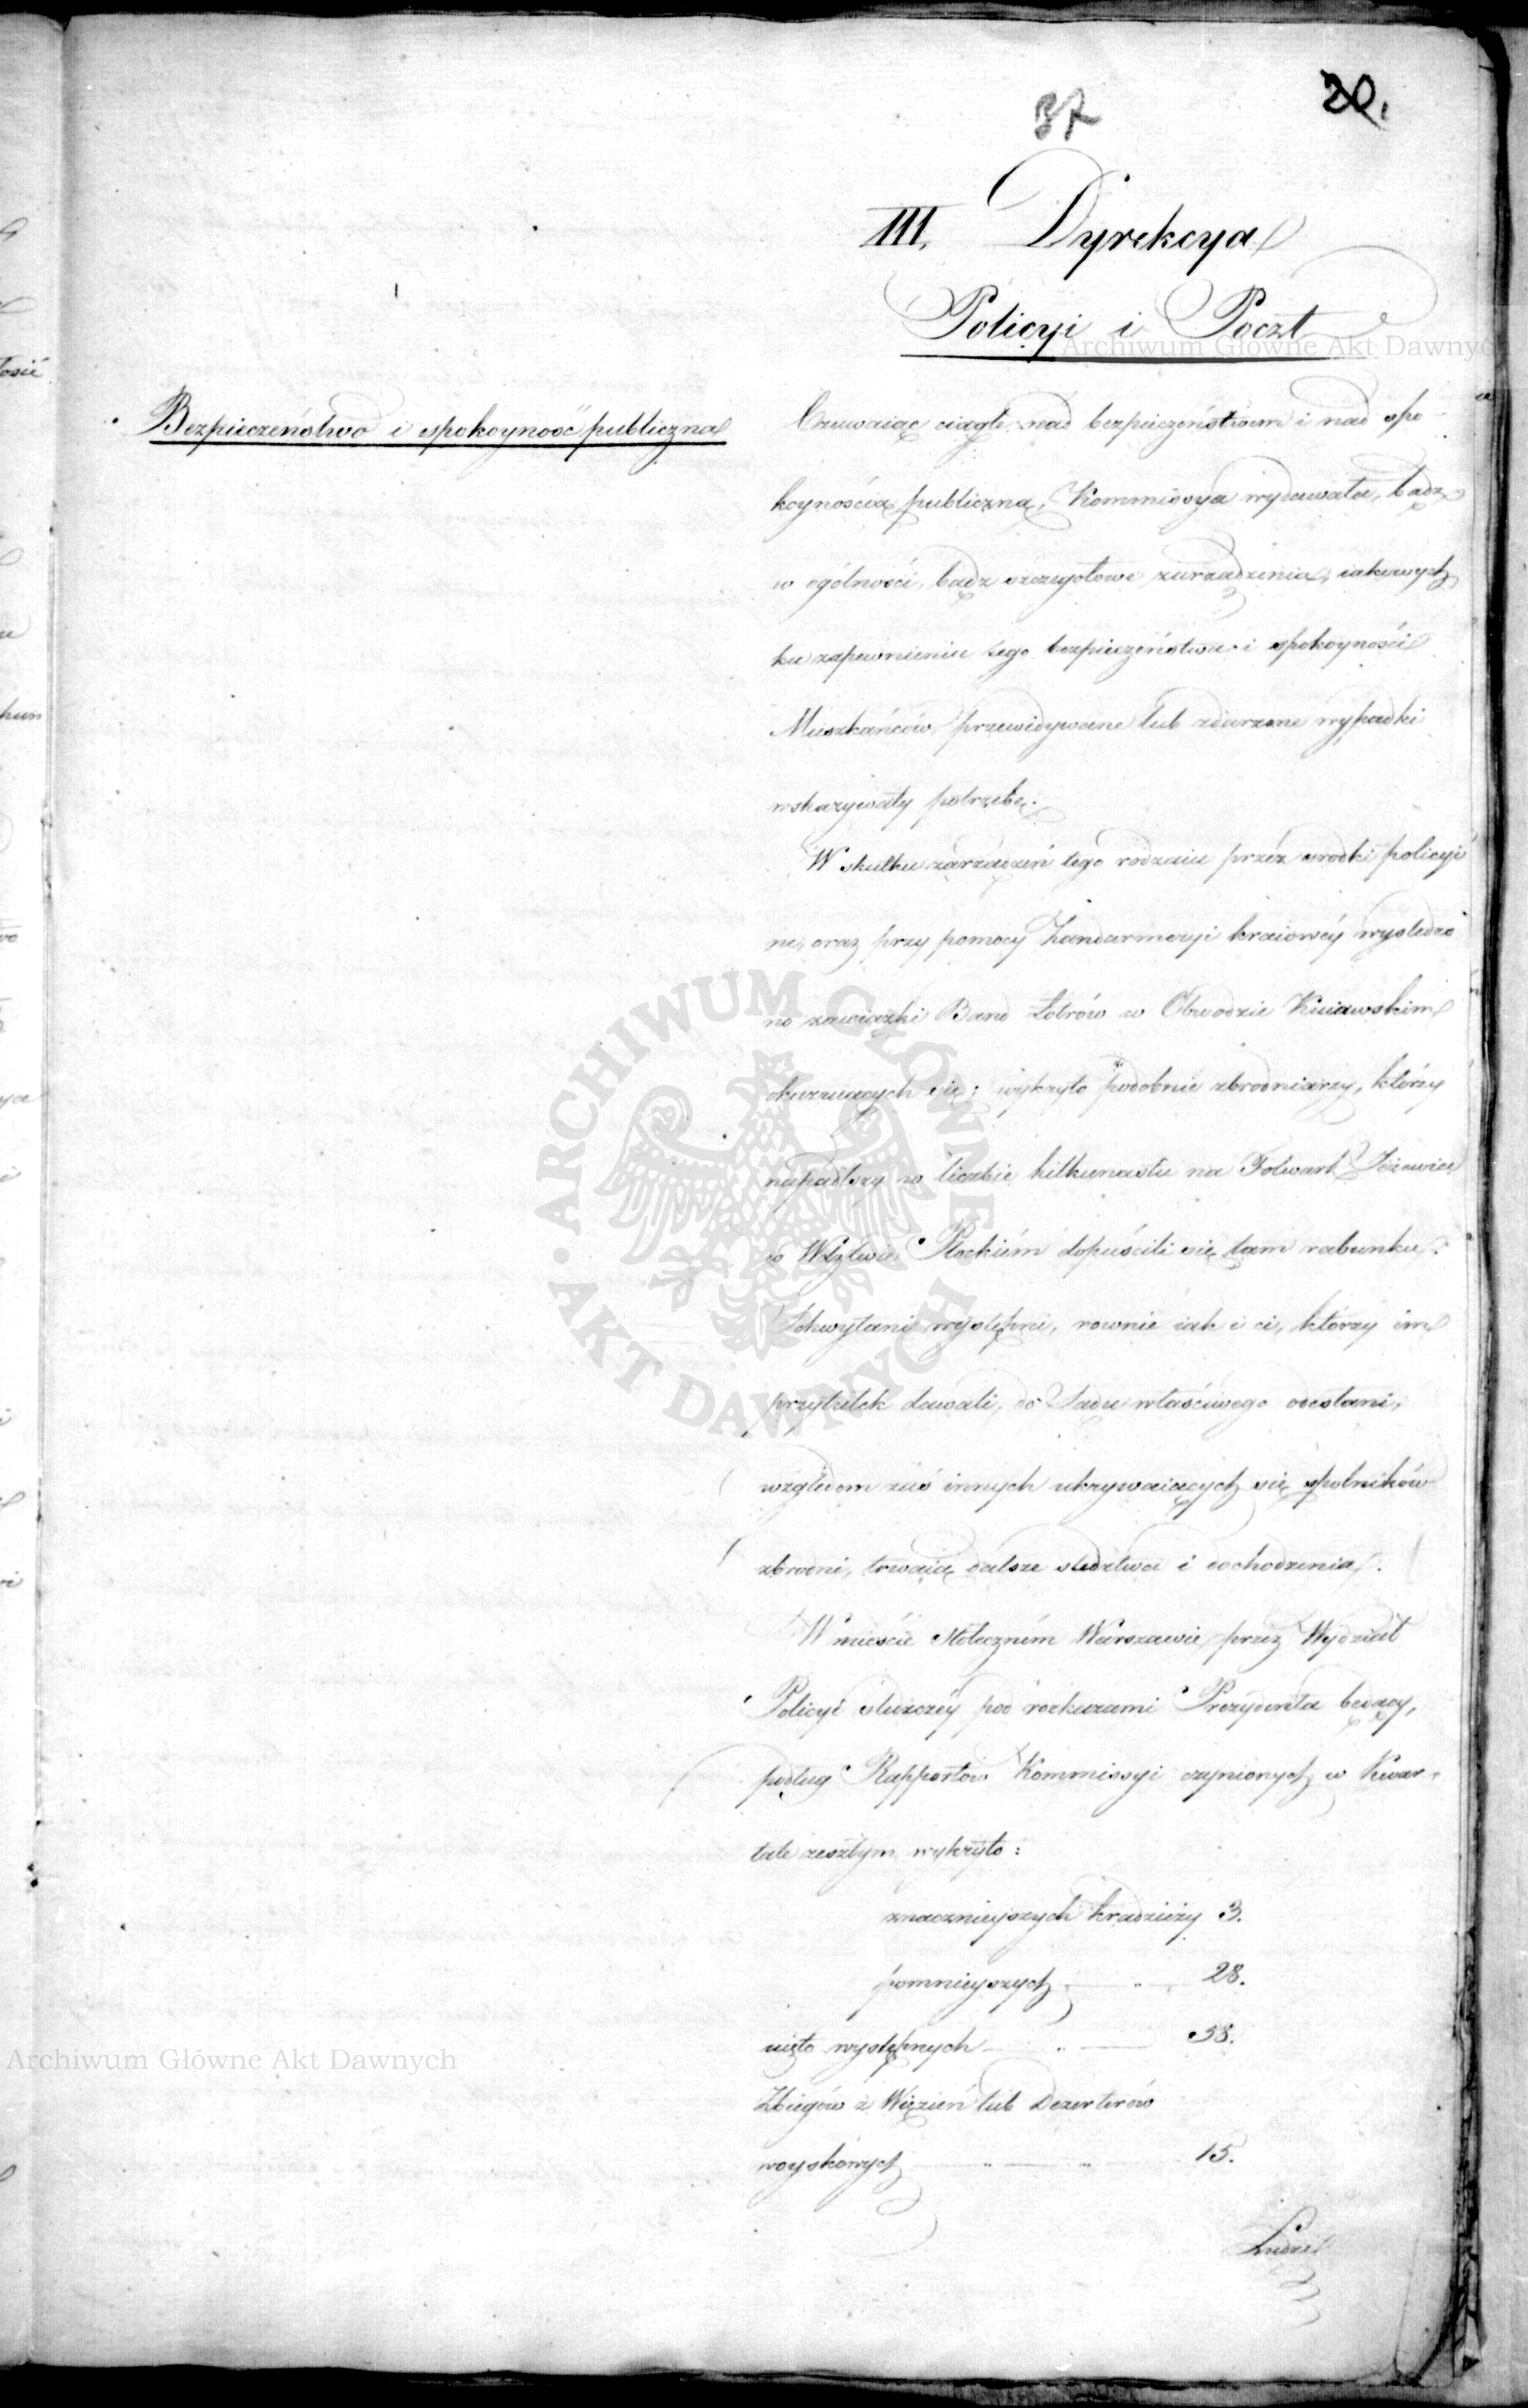 37
20.
III. Dyrekcya
Policyi i Poczt
Bezpieczeństwo i spokoyność publiczna
Czuwaiąc ciągle nad bezpieczeństwem i nad spo
koynością publiczną, Kommissya wydawała, bądz
w ogólności, bądz szczegołowe zarządzenia, iakowych
ku zapewnieniu tego bezpieczeństwa i spokoyności
Mieszkańców, przewidywane lub zdarzone wypadki
wskazywały potrzebę.
W skutku zarządzeń tego rodzaiu przez srodki policyi
ne, oraz przy pomocy Żandarmeryi kraiowéy wysledzo
no zawiązki Band Łotrów w Obwodzie Kuiawskim
okazuiących się; wykryto podobnie zbrodniarzy, którzy
napadłszy w liczbie kilkunastu na Folwark
w Wdztwie Płockiém dopuścili się tam rabunku.
Schwytani występni, rownie iak i ci, którzy im
przytułek dawali, do Sądu właściwego odesłani,
względem zaś innych ukrywaiących się spolników
zbrodni, trwaią dalsze sledztwa i dochodzenia.
W mieście stołeczném Warszawie, przez Wydział
Policyi służczéy pod rozkazami Prezydenta będący,
podług Rapportów Kommissyi czynionych w Kwar-
tale zeszłym wykryto:
znacznieyszych kradzieży 3.
pomnieyszych 28.
uięto występnych 58.
Zbiegów z Więzień lub Dezerterów
woyskowych 15.
Ludzie
Archiwum Główne Akt Dawnych
Archiwum Główne Akt Dawnych
ARCHIWUM GŁÓWNE
AKT DAWNYCH